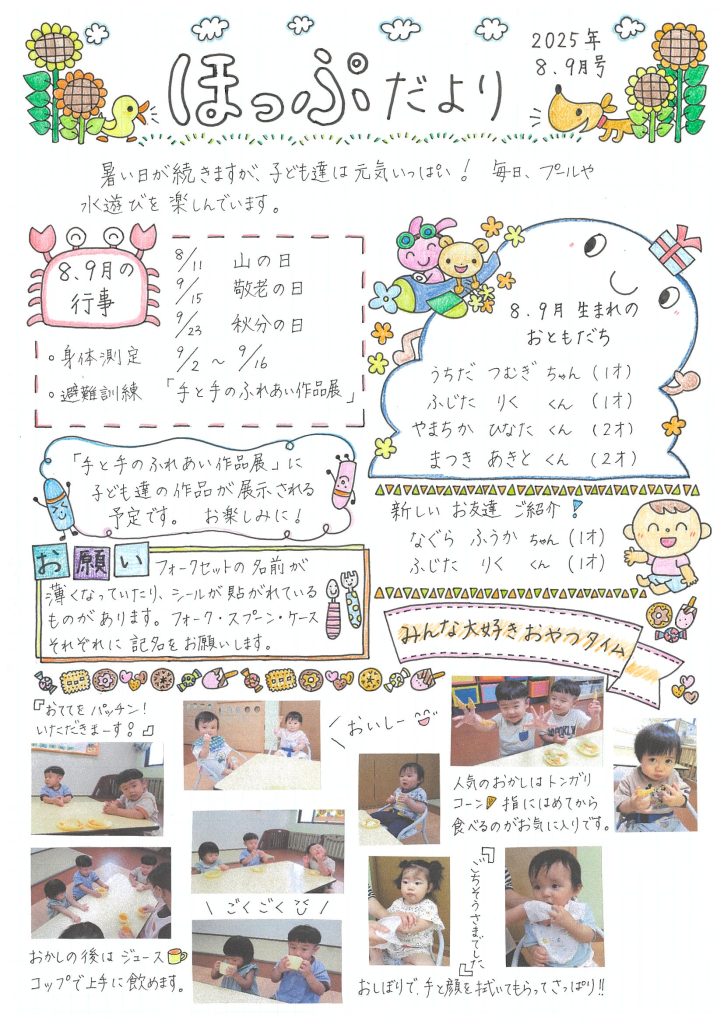 ほっぷだより
2025年
8.9月号
暑い日が続きますが、子ども達は元気いっぱい! 毎日、プールや
水遊びを楽しんでいます。
8.9月の
行事
8/11 山の日
9/15 敬老の日
9/23 秋分の日
○身体測定 9/2 ~ 9/16
○避難訓練 「手と手のふれあい作品展」
8.9月生まれの
おともだち
うちだ つむぎ ちゃん (1才)
ふじた りく くん (1才)
やまちか ひなた くん (2才)
まつき あきと くん (2才)
「手と手のふれあい作品展」に
子ども達の作品が展示される
予定です。 お楽しみに!
新しい お友達 ご紹介!
なぐら ふうか ちゃん (1才)
ふじた りく くん (1才)
お願い
フォークセットの名前が
薄くなっていたり、シールが貼がれている
ものがあります。フォーク・スプーン・ケース
それぞれに記名をお願いします。
みんな大好きおやつタイム
『おててをパッチン!
いただきまーす。』
\おいしー
人気のおかしはトンガリ
コーン 指にはめてから
食べるのがお気に入りです。
\ごくごく /
おかしの後はジュース
コップで上手に飲めます。
『ごちそうさまでした』
おしぼりで、手と顔を拭いてもらってさっぱり!!